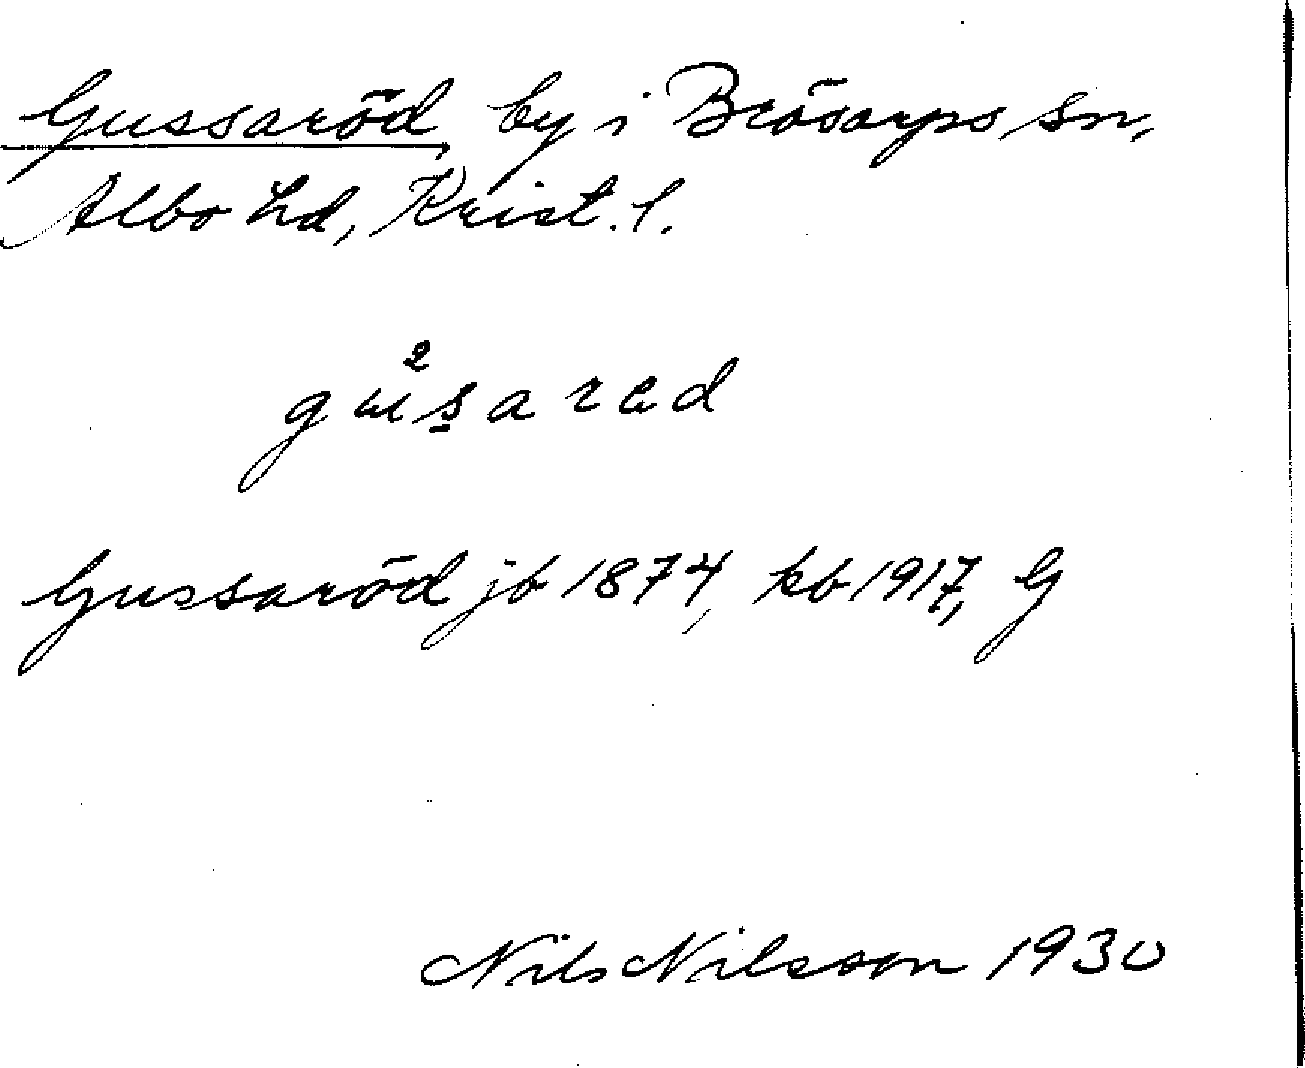 Gussaröd, by i Brösarps sn,
Albo hd, Krist. l.
Gussaröd jb 1874, kb 1917, G
Nils Nilsson 1930